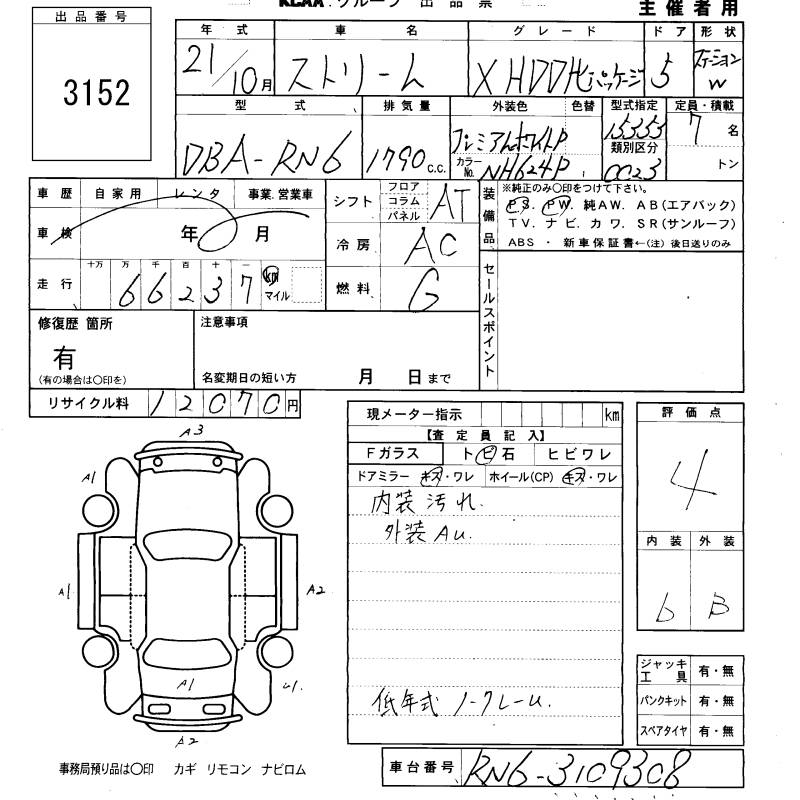 KCAA グループ 出品票
主催者用
出品番号
3152
年式 車名 グレード ドア 形状
21/10月 ストリーム X HDDナビパッケージ 5 ステーションW
型式 排気量 外装色 色替 型式指定 定員・積載
DBA-RN6 1790 c.c. プレミアムホワイトP 15353 7名
カラーNo. NH624P 類別区分 0023 トン
車歴 自家用 レンタ 事業.営業車
車検 年 月
走行 十万 万 千 百 十 一
66237 km マイル
シフト フロア コラム パネル AT
冷房 AC
燃料 G
装備品
※純正のみ○印をつけて下さい。
PS. PW. 純AW. AB(エアバック)
TV. ナビ. カワ. SR(サンルーフ)
ABS ・ 新車保証書←(注) 後日送りのみ
セールスポイント
修復歴 箇所
有
(有の場合は○印を)
注意事項
名変期日の短い方 月 日まで
リサイクル料 12070円
現メーター指示 km
【査定員記入】
Fガラス トビ石 ヒビワレ
ドアミラー キズ・ワレ ホイール(CP) キズ・ワレ
内装汚れ.
外装AU.
低年式 ノークレーム.
評価点
4
内装 外装
b B
ジャッキ工具 有・無
パンクキット 有・無
スペアタイヤ 有・無
A3
A1
A1
A2
A1
U1.
A2
事務局預り品は○印 カギ リモコン ナビロム
車台番号 RN6-3109308